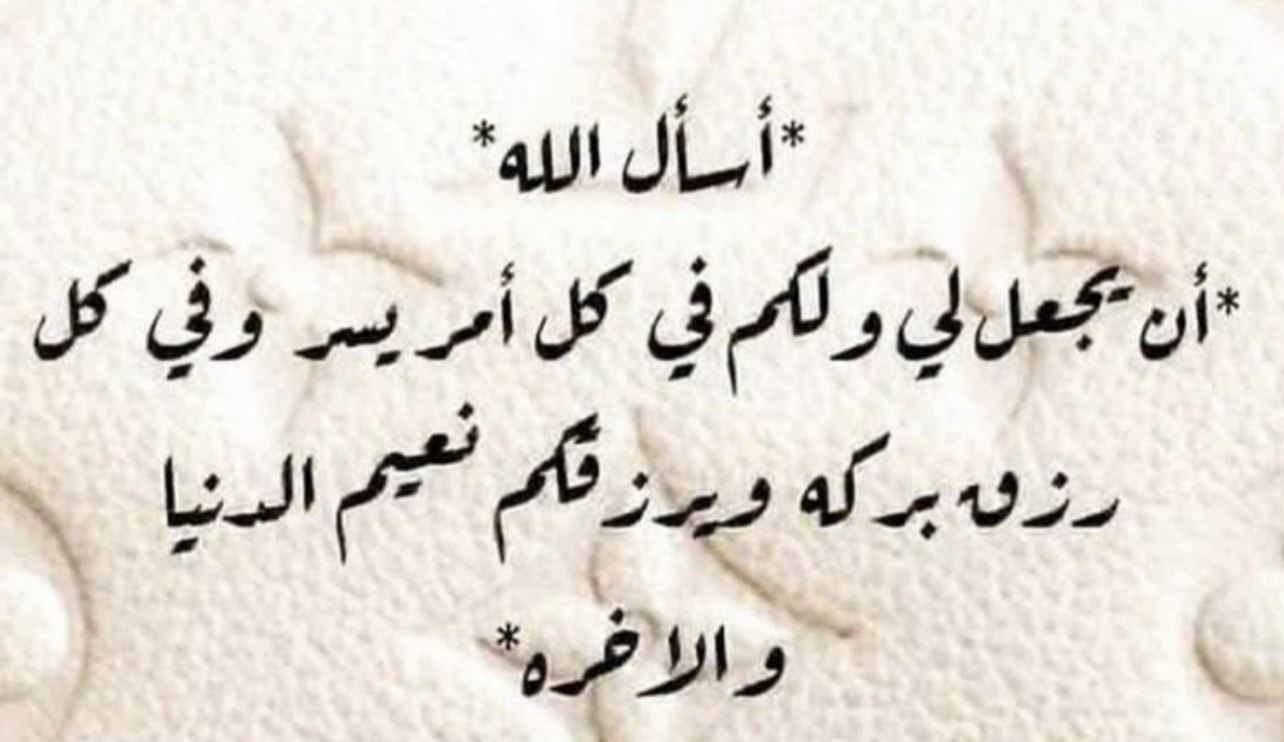 *أسأل الله*
*أن يجعل لي ولكم في كل أمر يسر وفي كل
رزق بركه ويرزقكم نعيم الدنيا
والاخره*